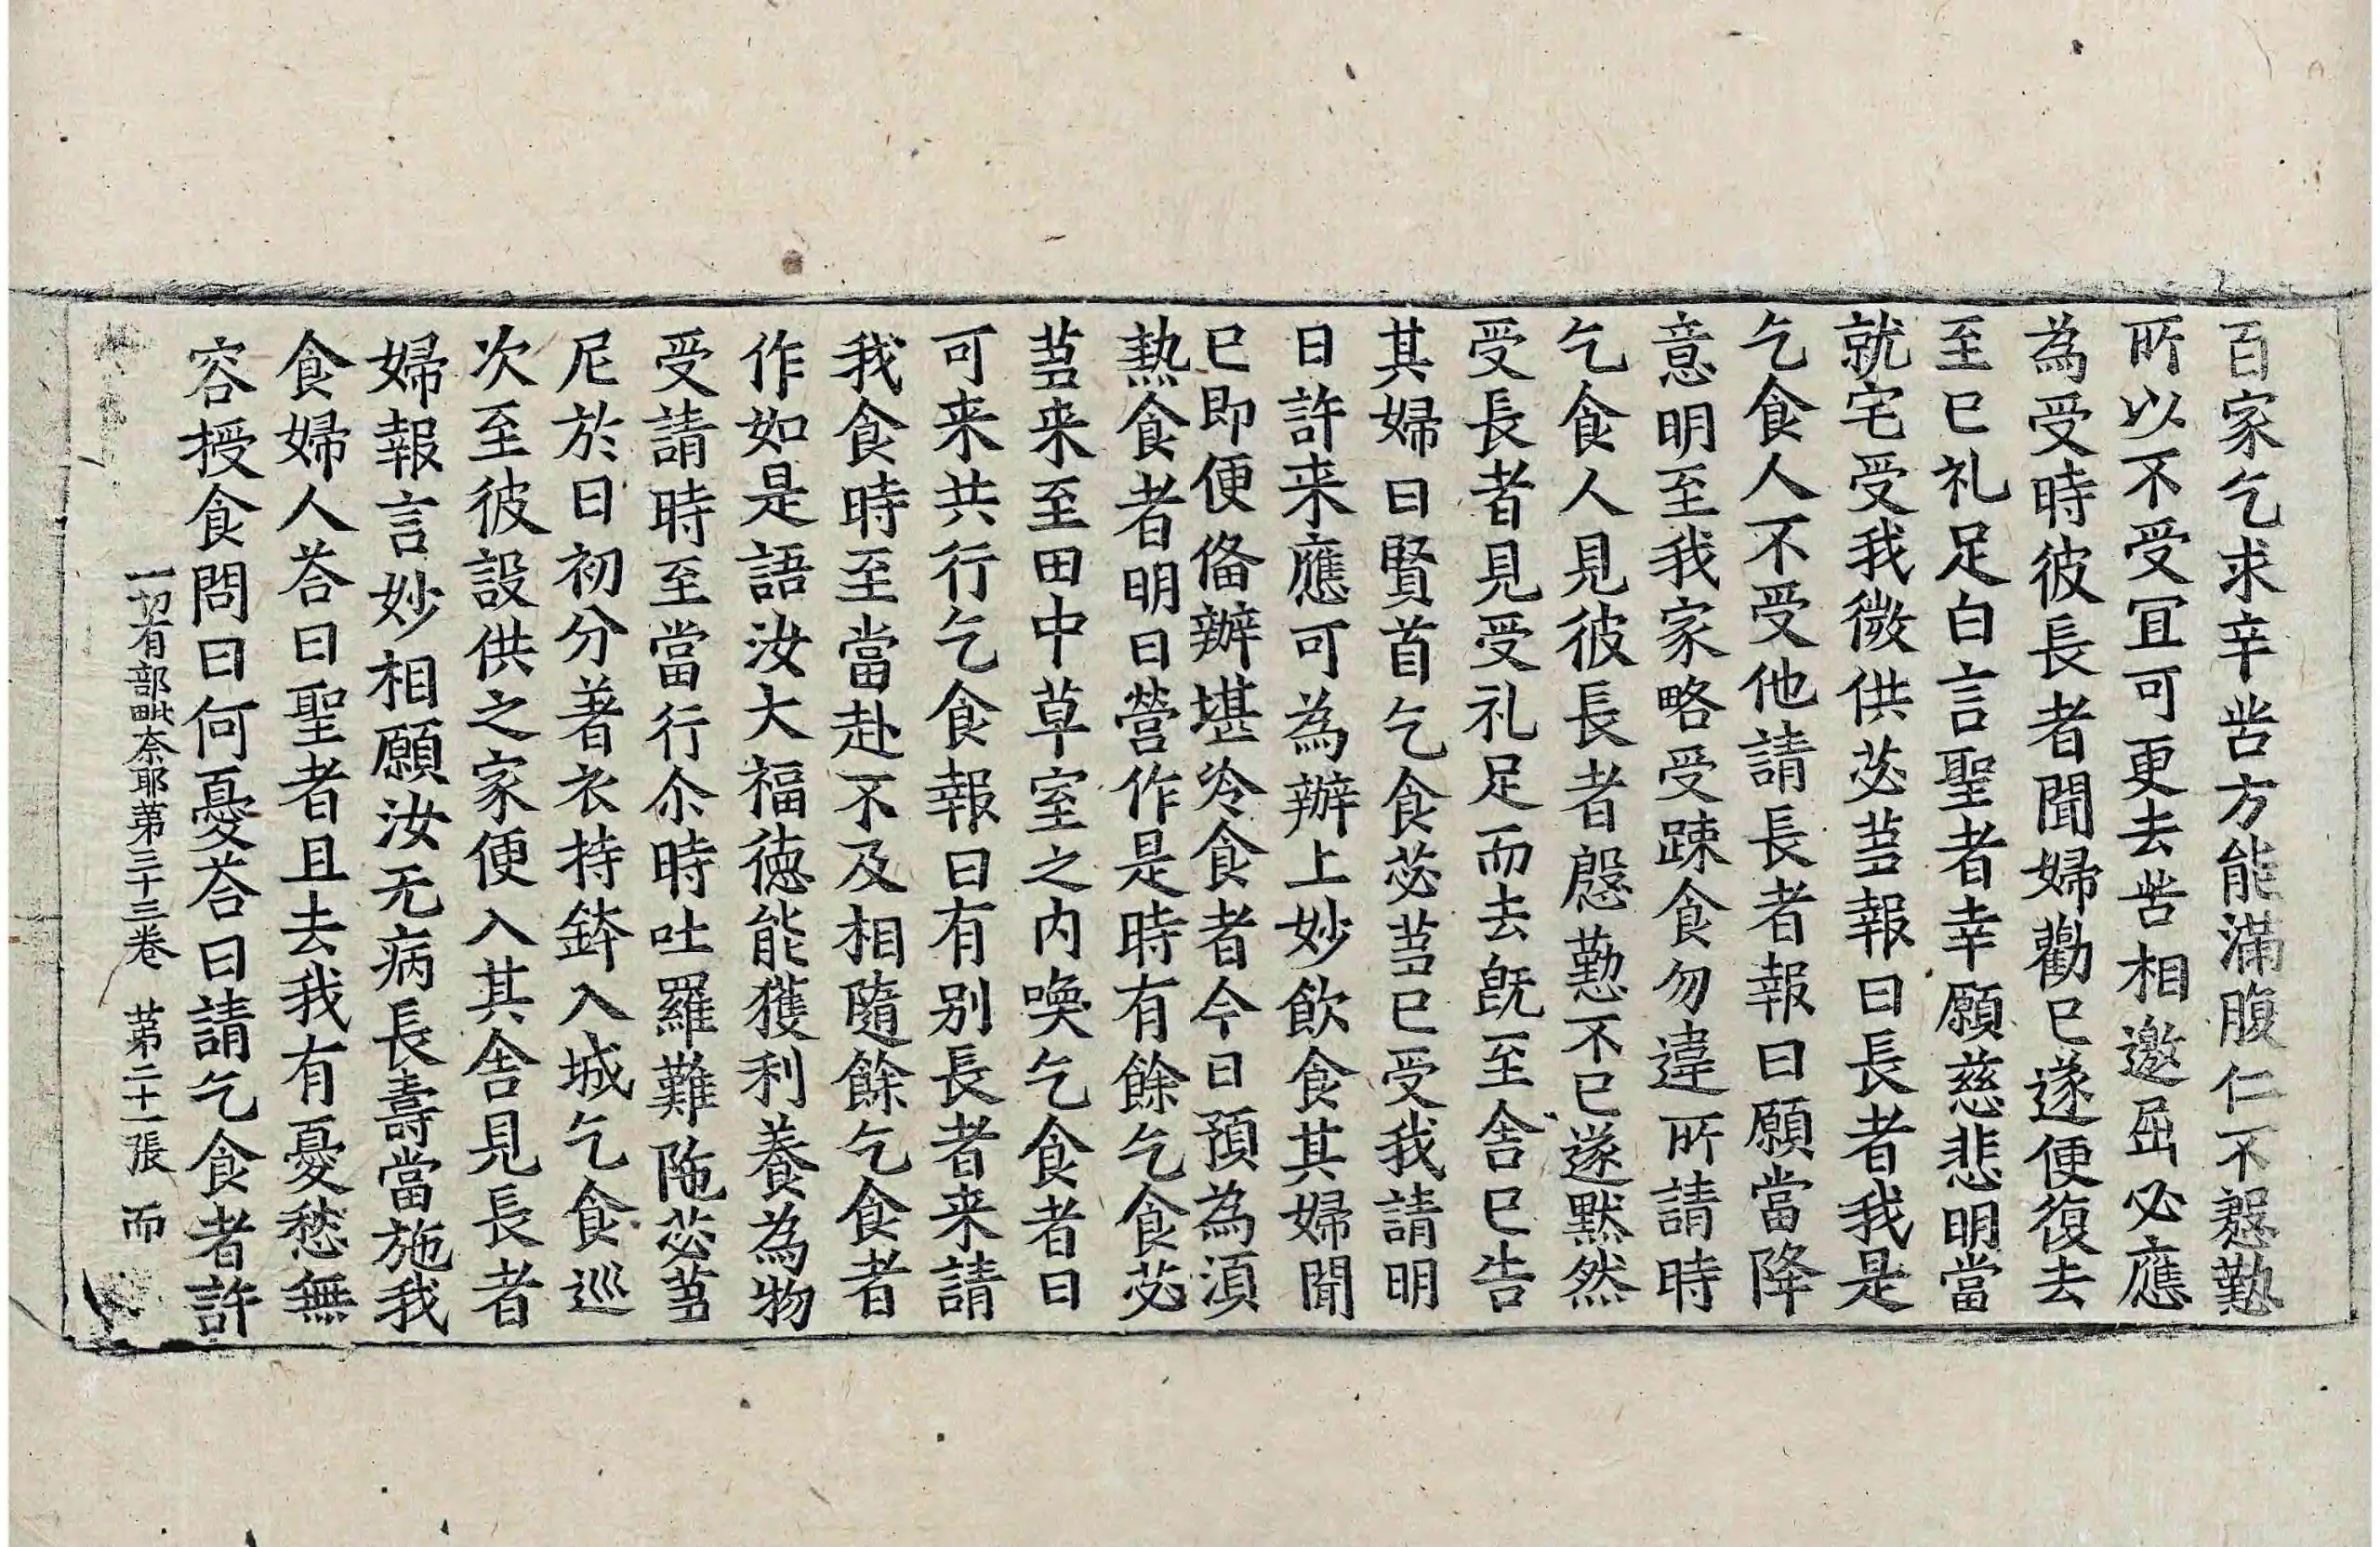 百家乞求辛苦方能滿腹仁不慇懃
所以不受宜可更去苦相邀屈必應
為受時彼長者聞婦勸已遂便復去
至已礼足白言聖者幸願慈悲明當
就宅受我微供苾蒭報曰長者我是
乞食人不受他請長者報曰願當降
意明至我家略受踈食勿違所請時
乞食人見彼長者慇懃不已遂默然
受長者見受礼足而去旣至舍已告
其婦曰賢首乞食苾蒭已受我請明
日許来應可為辦上妙飲食其婦聞
已即便俻辦堪冷食者今日預為湏
熱食者明日營作是時有餘乞食苾
蒭来至田中草室之内喚乞食者曰
可来共行乞食報曰有別長者来請
我食時至當赴不及相隨餘乞食者
作如是語汝大福徳能獲利養為物
受請時至當行尒時吐羅難陁苾蒭
尼於日初分著衣持鉢入城乞食巡
次至彼設供之家便入其舍見長者
婦報言妙相願汝无病長壽當施我
食婦人荅曰聖者且去我有憂愁無
容授食問曰何憂荅曰請乞食者許
一切有部毗奈耶第三十三卷 第二十一張 而